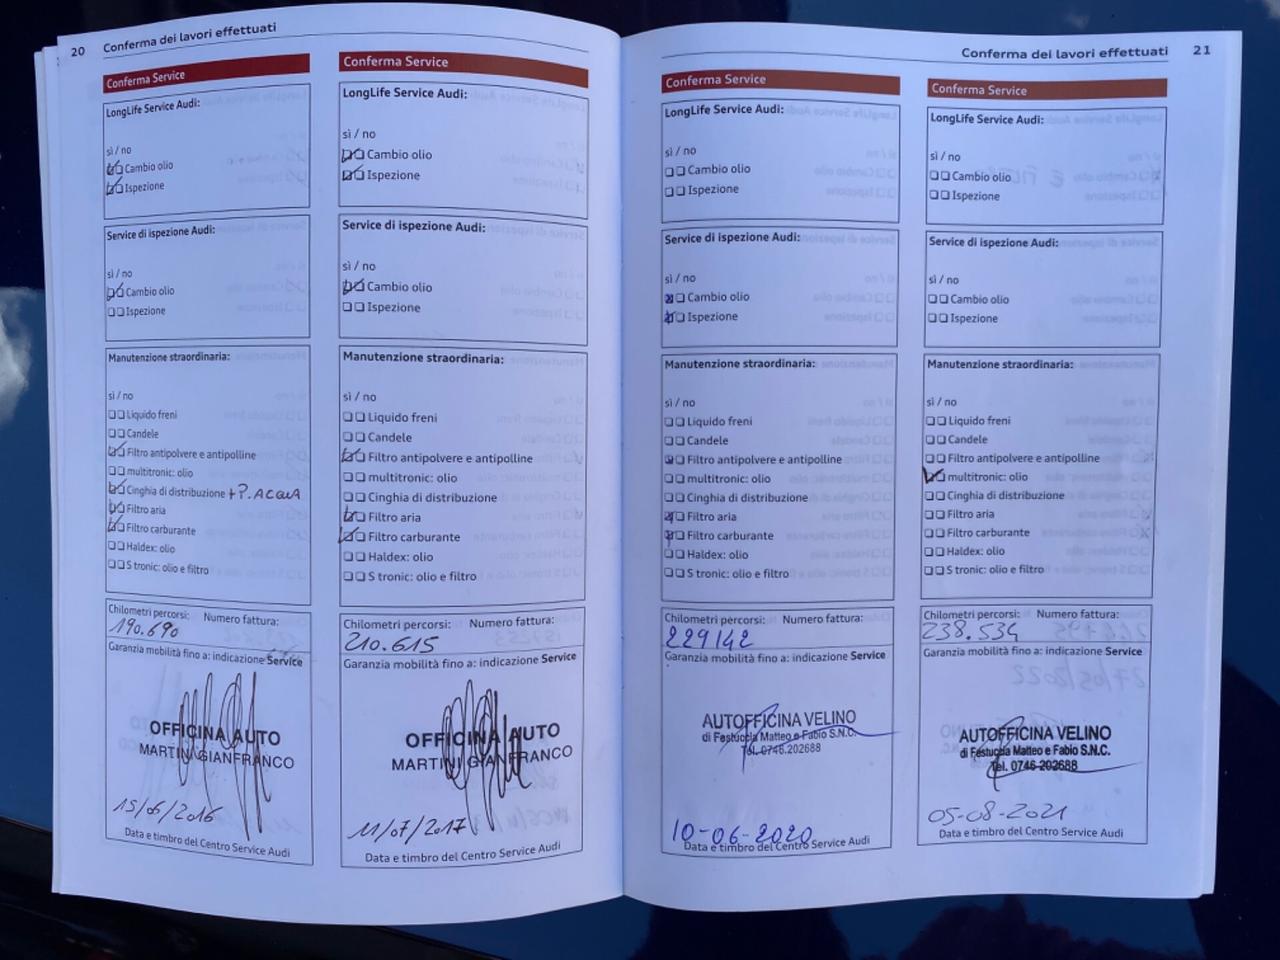 20 Conferma dei lavori effettuati
Conferma Service
LongLife Service Audi:
sì / no
Cambio olio
Ispezione
Service di ispezione Audi:
sì / no
Cambio olio
Ispezione
Manutenzione straordinaria:
sì / no
Liquido freni
Candele
Filtro antipolvere e antipolline
multitronic: olio
Cinghia di distribuzione + P. ACQUA
Filtro aria
Filtro carburante
Haldex: olio
S tronic: olio e filtro
Chilometri percorsi: Numero fattura:
190.690
Garanzia mobilità fino a: indicazione Service
OFFICINA AUTO
MARTINI GIANFRANCO
15/06/2016
Data e timbro del Centro Service Audi
Conferma Service
LongLife Service Audi:
sì / no
Cambio olio
Ispezione
Service di ispezione Audi:
sì / no
Cambio olio
Ispezione
Manutenzione straordinaria:
sì / no
Liquido freni
Candele
Filtro antipolvere e antipolline
multitronic: olio
Cinghia di distribuzione
Filtro aria
Filtro carburante
Haldex: olio
S tronic: olio e filtro
Chilometri percorsi: Numero fattura:
210.615
Garanzia mobilità fino a: indicazione Service
OFFICINA AUTO
MARTINI GIANFRANCO
11/07/2017
Data e timbro del Centro Service Audi
Conferma dei lavori effettuati 21
Conferma Service
LongLife Service Audi:
sì / no
Cambio olio
Ispezione
Service di ispezione Audi:
sì / no
Cambio olio
Ispezione
Manutenzione straordinaria:
sì / no
Liquido freni
Candele
Filtro antipolvere e antipolline
multitronic: olio
Cinghia di distribuzione
Filtro aria
Filtro carburante
Haldex: olio
S tronic: olio e filtro
Chilometri percorsi: Numero fattura:
229142
Garanzia mobilità fino a: indicazione Service
AUTOFFICINA VELINO
di Festuccia Matteo e Fabio S.N.C.
Tel. 0746.202688
10-06-2020
Data e timbro del Centro Service Audi
Conferma Service
LongLife Service Audi:
sì / no
Cambio olio
Ispezione
Service di ispezione Audi:
sì / no
Cambio olio
Ispezione
Manutenzione straordinaria:
sì / no
Liquido freni
Candele
Filtro antipolvere e antipolline
multitronic: olio
Cinghia di distribuzione
Filtro aria
Filtro carburante
Haldex: olio
S tronic: olio e filtro
Chilometri percorsi: Numero fattura:
238.534
Garanzia mobilità fino a: indicazione Service
AUTOFFICINA VELINO
di Festuccia Matteo e Fabio S.N.C.
Tel. 0746 202688
05-08-2021
Data e timbro del Centro Service Audi